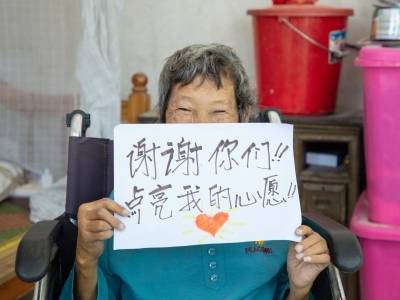 谢谢你们!!
点亮我的心愿!!